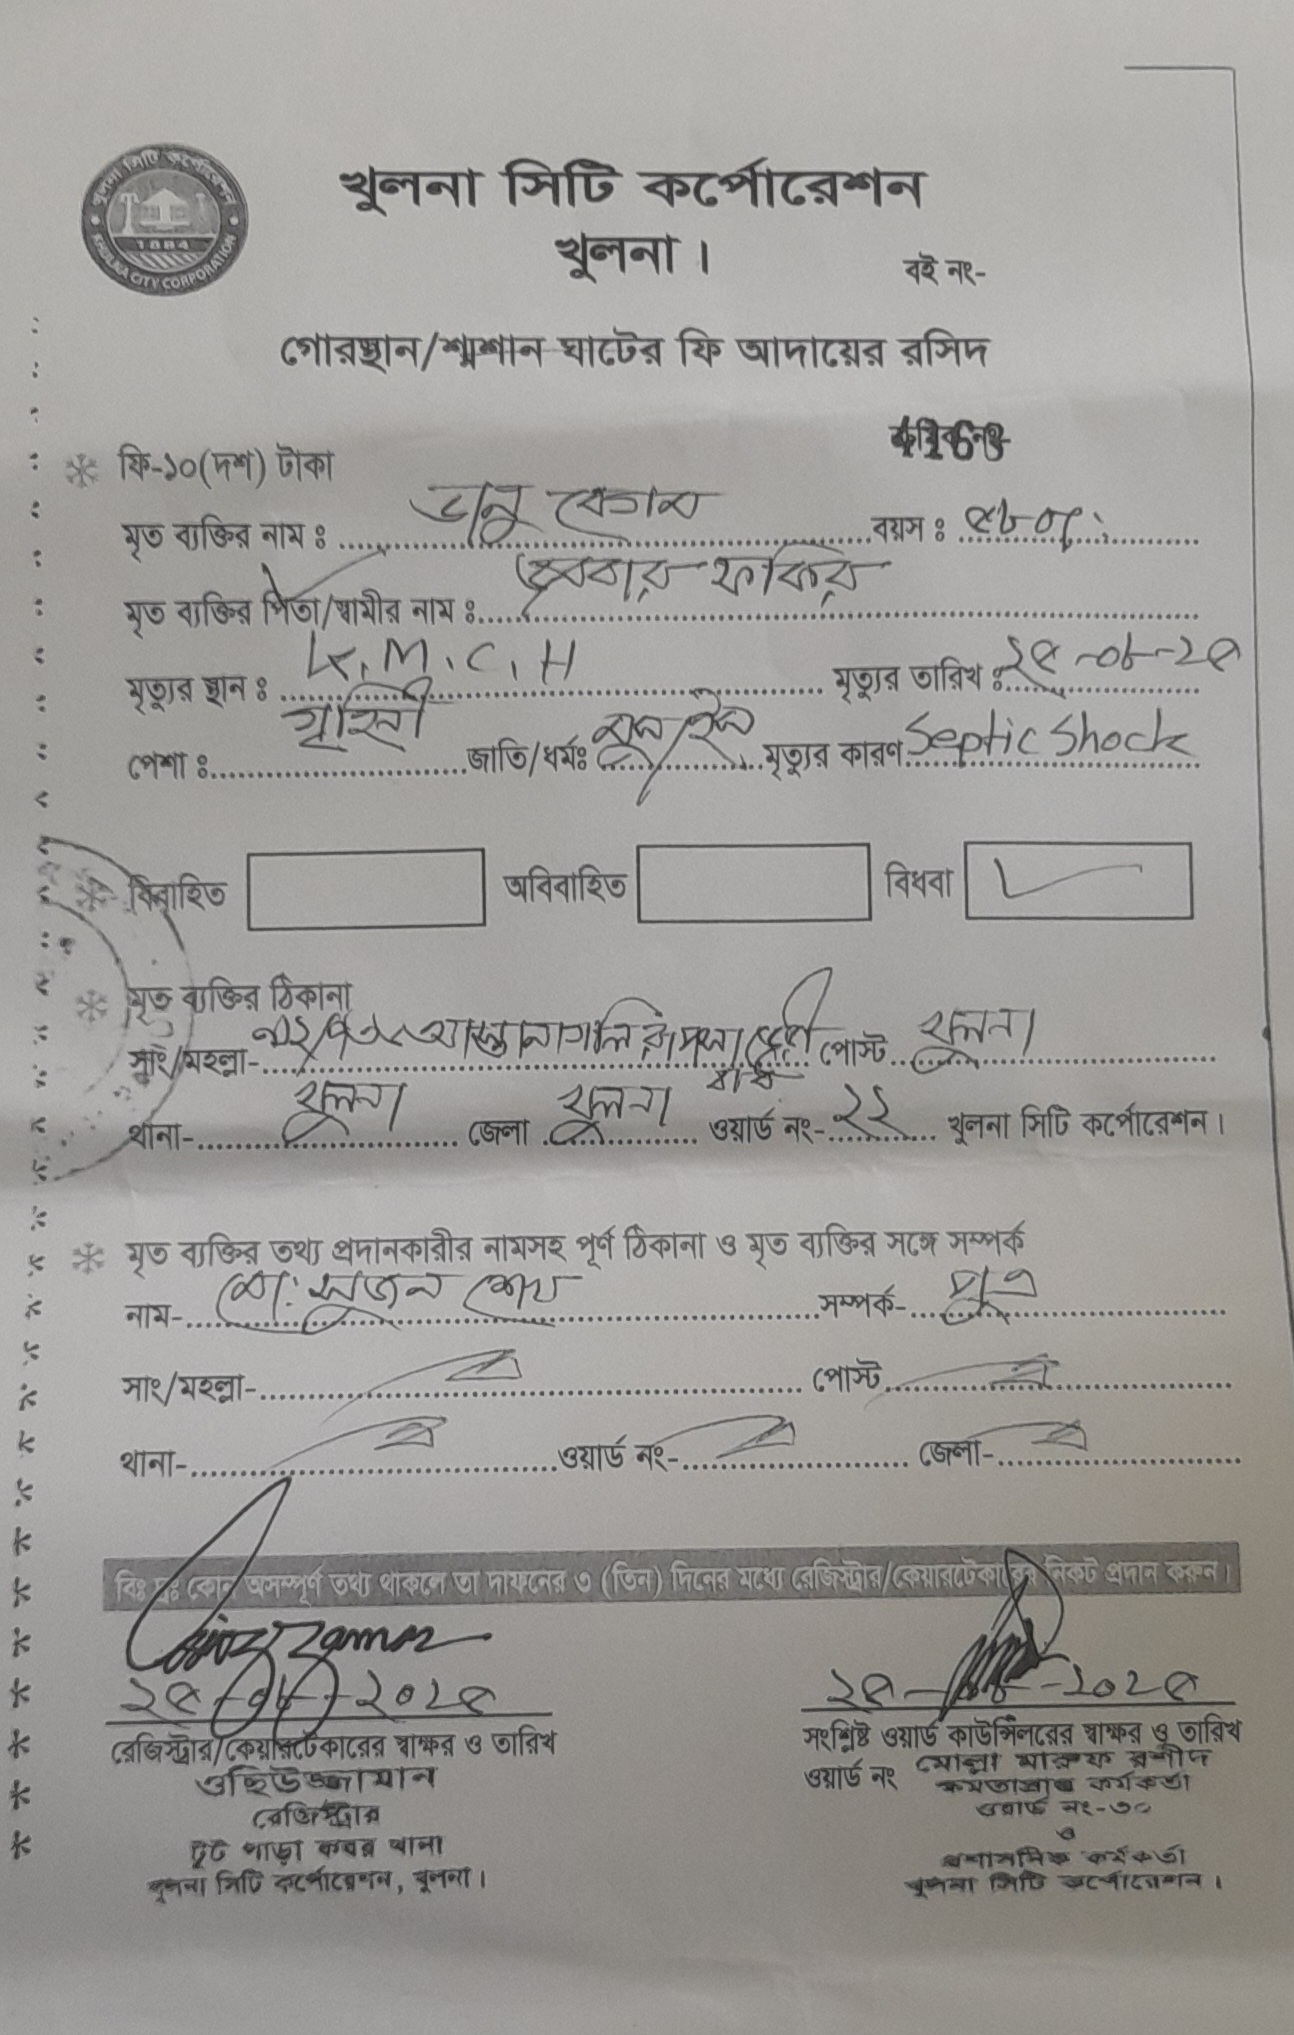 খুলনা সিটি কর্পোরেশন
KHULNA CITY CORPORATION
1884
খুলনা সিটি কর্পোরেশন
খুলনা।
বই নং-
গোরস্থান/শ্মশান ঘাটের ফি আদায়ের রসিদ
ফি-১০(দশ) টাকা
মৃত ব্যক্তির নাম ঃ ভানু বেগম বয়স ঃ ৫৮
মৃত ব্যক্তির পিতা/স্বামীর নাম ঃ জব্বার ফকির
মৃত্যুর স্থান ঃ K.M.C.H মৃত্যুর তারিখ ঃ ২৫-০৮-২৫
পেশা ঃ গৃহিনী জাতি/ধর্মঃ মুস/ইস মৃত্যুর কারণ Septic Shock
বিবাহিত অবিবাহিত বিধবা
মৃত ব্যক্তির ঠিকানা
সাং/মহল্লা- পোস্ট খুলনা
থানা- খুলনা জেলা খুলনা ওয়ার্ড নং- ২২ খুলনা সিটি কর্পোরেশন।
মৃত ব্যক্তির তথ্য প্রদানকারীর নামসহ পূর্ণ ঠিকানা ও মৃত ব্যক্তির সঙ্গে সম্পর্ক
নাম- মো: সুজন শেখ সম্পর্ক- পুত্র
সাং/মহল্লা- ঐ পোস্ট ঐ
থানা- ঐ ওয়ার্ড নং- ঐ জেলা- ঐ
বিঃ দ্রঃ কোন অসম্পূর্ণ তথ্য থাকলে তা দাফনের ৩ (তিন) দিনের মধ্যে রেজিস্ট্রার/কেয়ারটেকারের নিকট প্রদান করুন।
২৫-০৮-২০২৫
রেজিস্ট্রার/কেয়ারটেকারের স্বাক্ষর ও তারিখ
ওছিউজ্জামান
রেজিস্ট্রার
টুট পাড়া কবর খানা
খুলনা সিটি কর্পোরেশন, খুলনা।
২৫-০৮-২০২৫
সংশ্লিষ্ট ওয়ার্ড কাউন্সিলরের স্বাক্ষর ও তারিখ
ওয়ার্ড নং মোল্লা মারুফ রশীদ
ক্ষমতাপ্রাপ্ত কর্মকর্তা
ওয়ার্ড নং-৩০
ও
প্রশাসনিক কর্মকর্তা
খুলনা সিটি কর্পোরেশন।